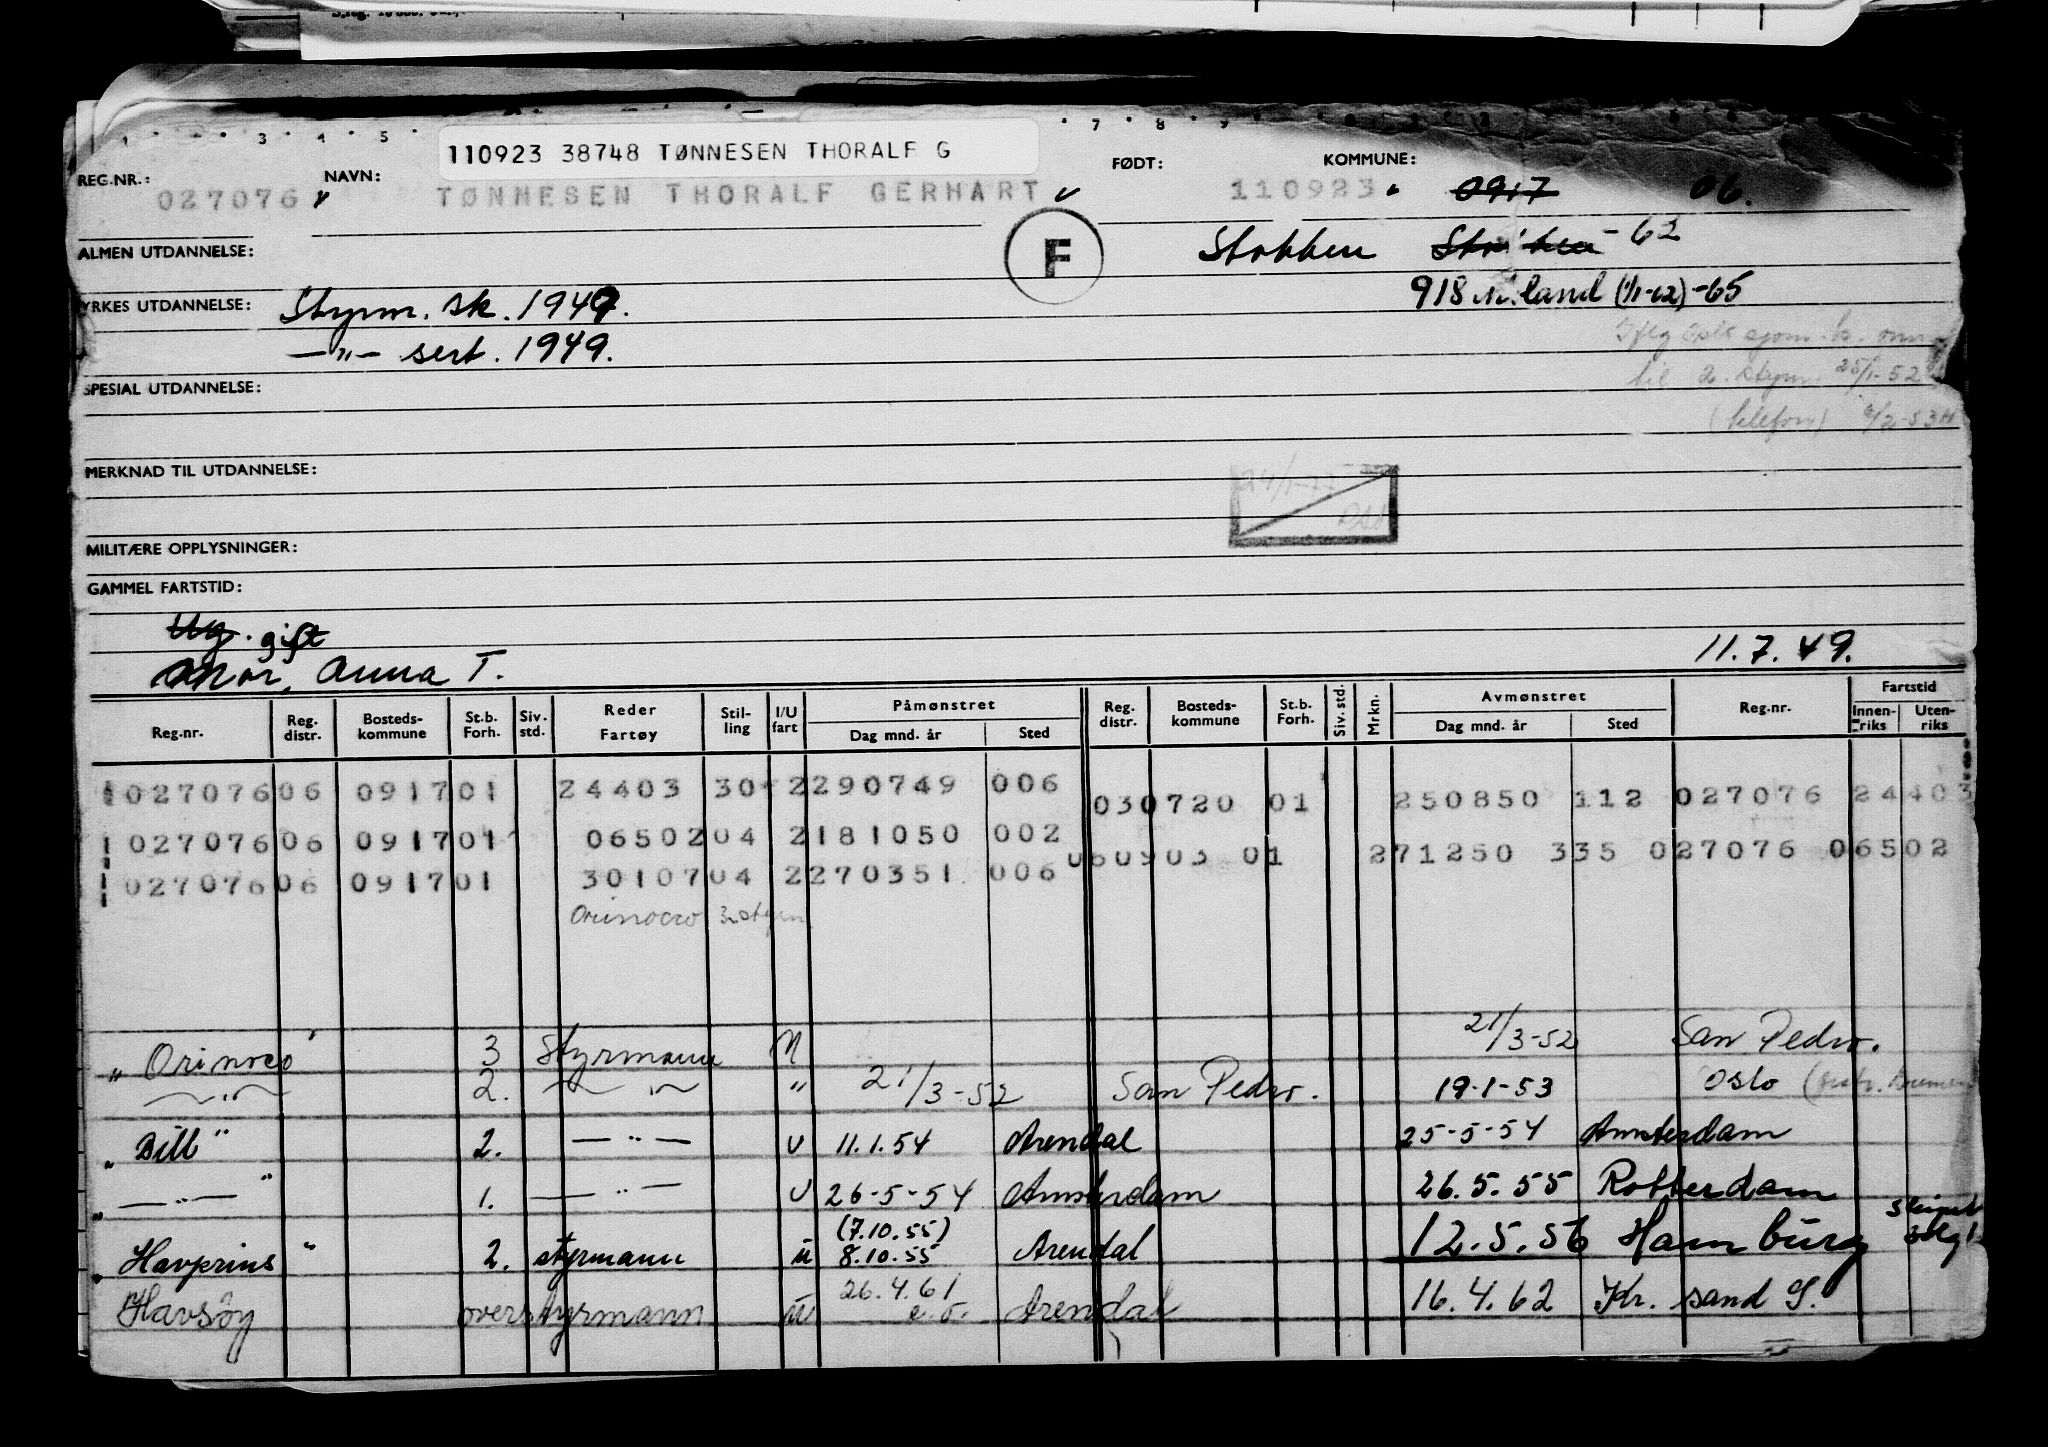 110923 38748 TØNNESEN THORALF G
REG.NR.: 027076 NAVN: TØNNESEN THORALF GERHART FØDT: 110923 KOMMUNE: 0917 06.
ALMEN UTDANNELSE: F Stokken - 62
YRKES UTDANNELSE: Styrm. sk. 1949. 918 M.land (1/1-62) -65
—"— sert. 1949.
til 2. styrm. 25/1-52
SPESIAL UTDANNELSE:
(telefon) 6/2-53
MERKNAD TIL UTDANNELSE:
MILITÆRE OPPLYSNINGER:
GAMMEL FARTSTID:
Ug. gift
Mor, Anna T. 11.7.49.
Reg.nr. Reg. distr. Bosteds-kommune St.b. Forh. Siv. std. Reder Fartøy Stil-ling I/U fart Påmønstret Dag mnd. år Sted Reg. distr. Bosteds-kommune St.b. Forh. Siv. std. Mrkn. Avmønstret Dag mnd. år Sted Reg.nr. Fartstid Innen-riks Uten-riks
027076 06 0917 01 24403 30 2 290749 006 030720 01 250850 112 027076 24403
027076 06 0917 01 06502 04 2 181050 002 060903 01 271250 335 027076 06502
027076 06 0917 01 30107 04 2 270351 006
Orinoco 3. styrm
" Orinoco 3 Styrmann U 21/3-52 San Pedro.
—"— 2. —"— " 21/3-52 San Pedro. 19-1-53 Oslo
" Bill " 2. —"— U 11.1.54 Arendal 25-5-54 Amsterdam
" —"— " 1. —"— U 26-5-54 Amsterdam 26.5.55 Rotterdam
" Havprins " 2. styrmann u (7.10.55) 8.10.55 Arendal 12.5.56 Hamburg
Havsöy overstyrmann u 26.4.61 Arendal 16.4.62 Kr. sand S.